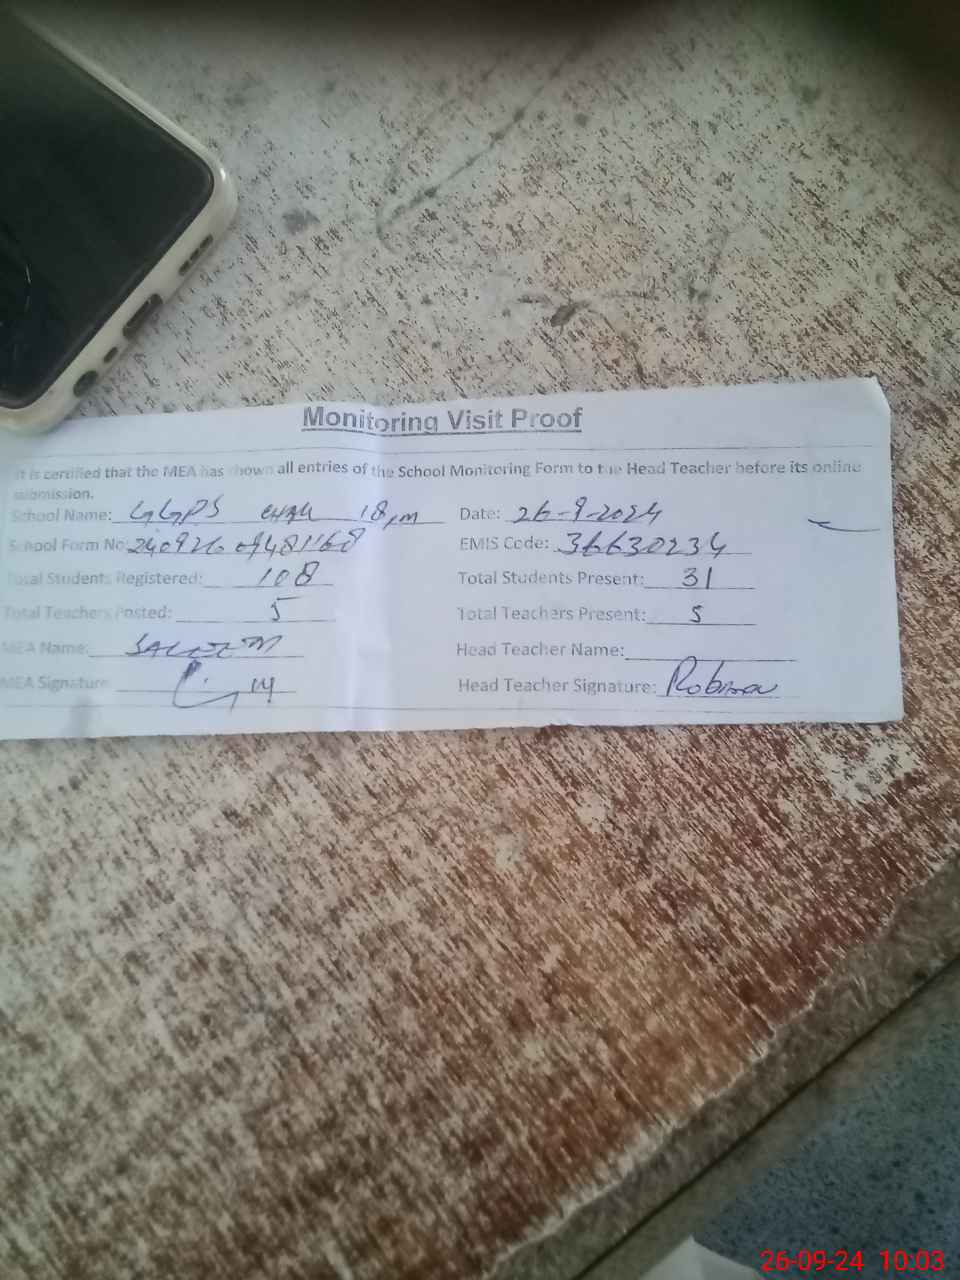 Monitoring Visit Proof
It is certified that the MEA has shown all entries of the School Monitoring Form to the Head Teacher before its online
submission.
School Name: GGPS CHAK 18/M Date: 26-9-2024
School Form No: EMIS Code: 36630234
Total Students Registered: 108 Total Students Present: 31
Total Teachers Posted: 5 Total Teachers Present: 5
MEA Name: SALEEM Head Teacher Name:
MEA Signature Head Teacher Signature: Robina
26-09-24 10:03